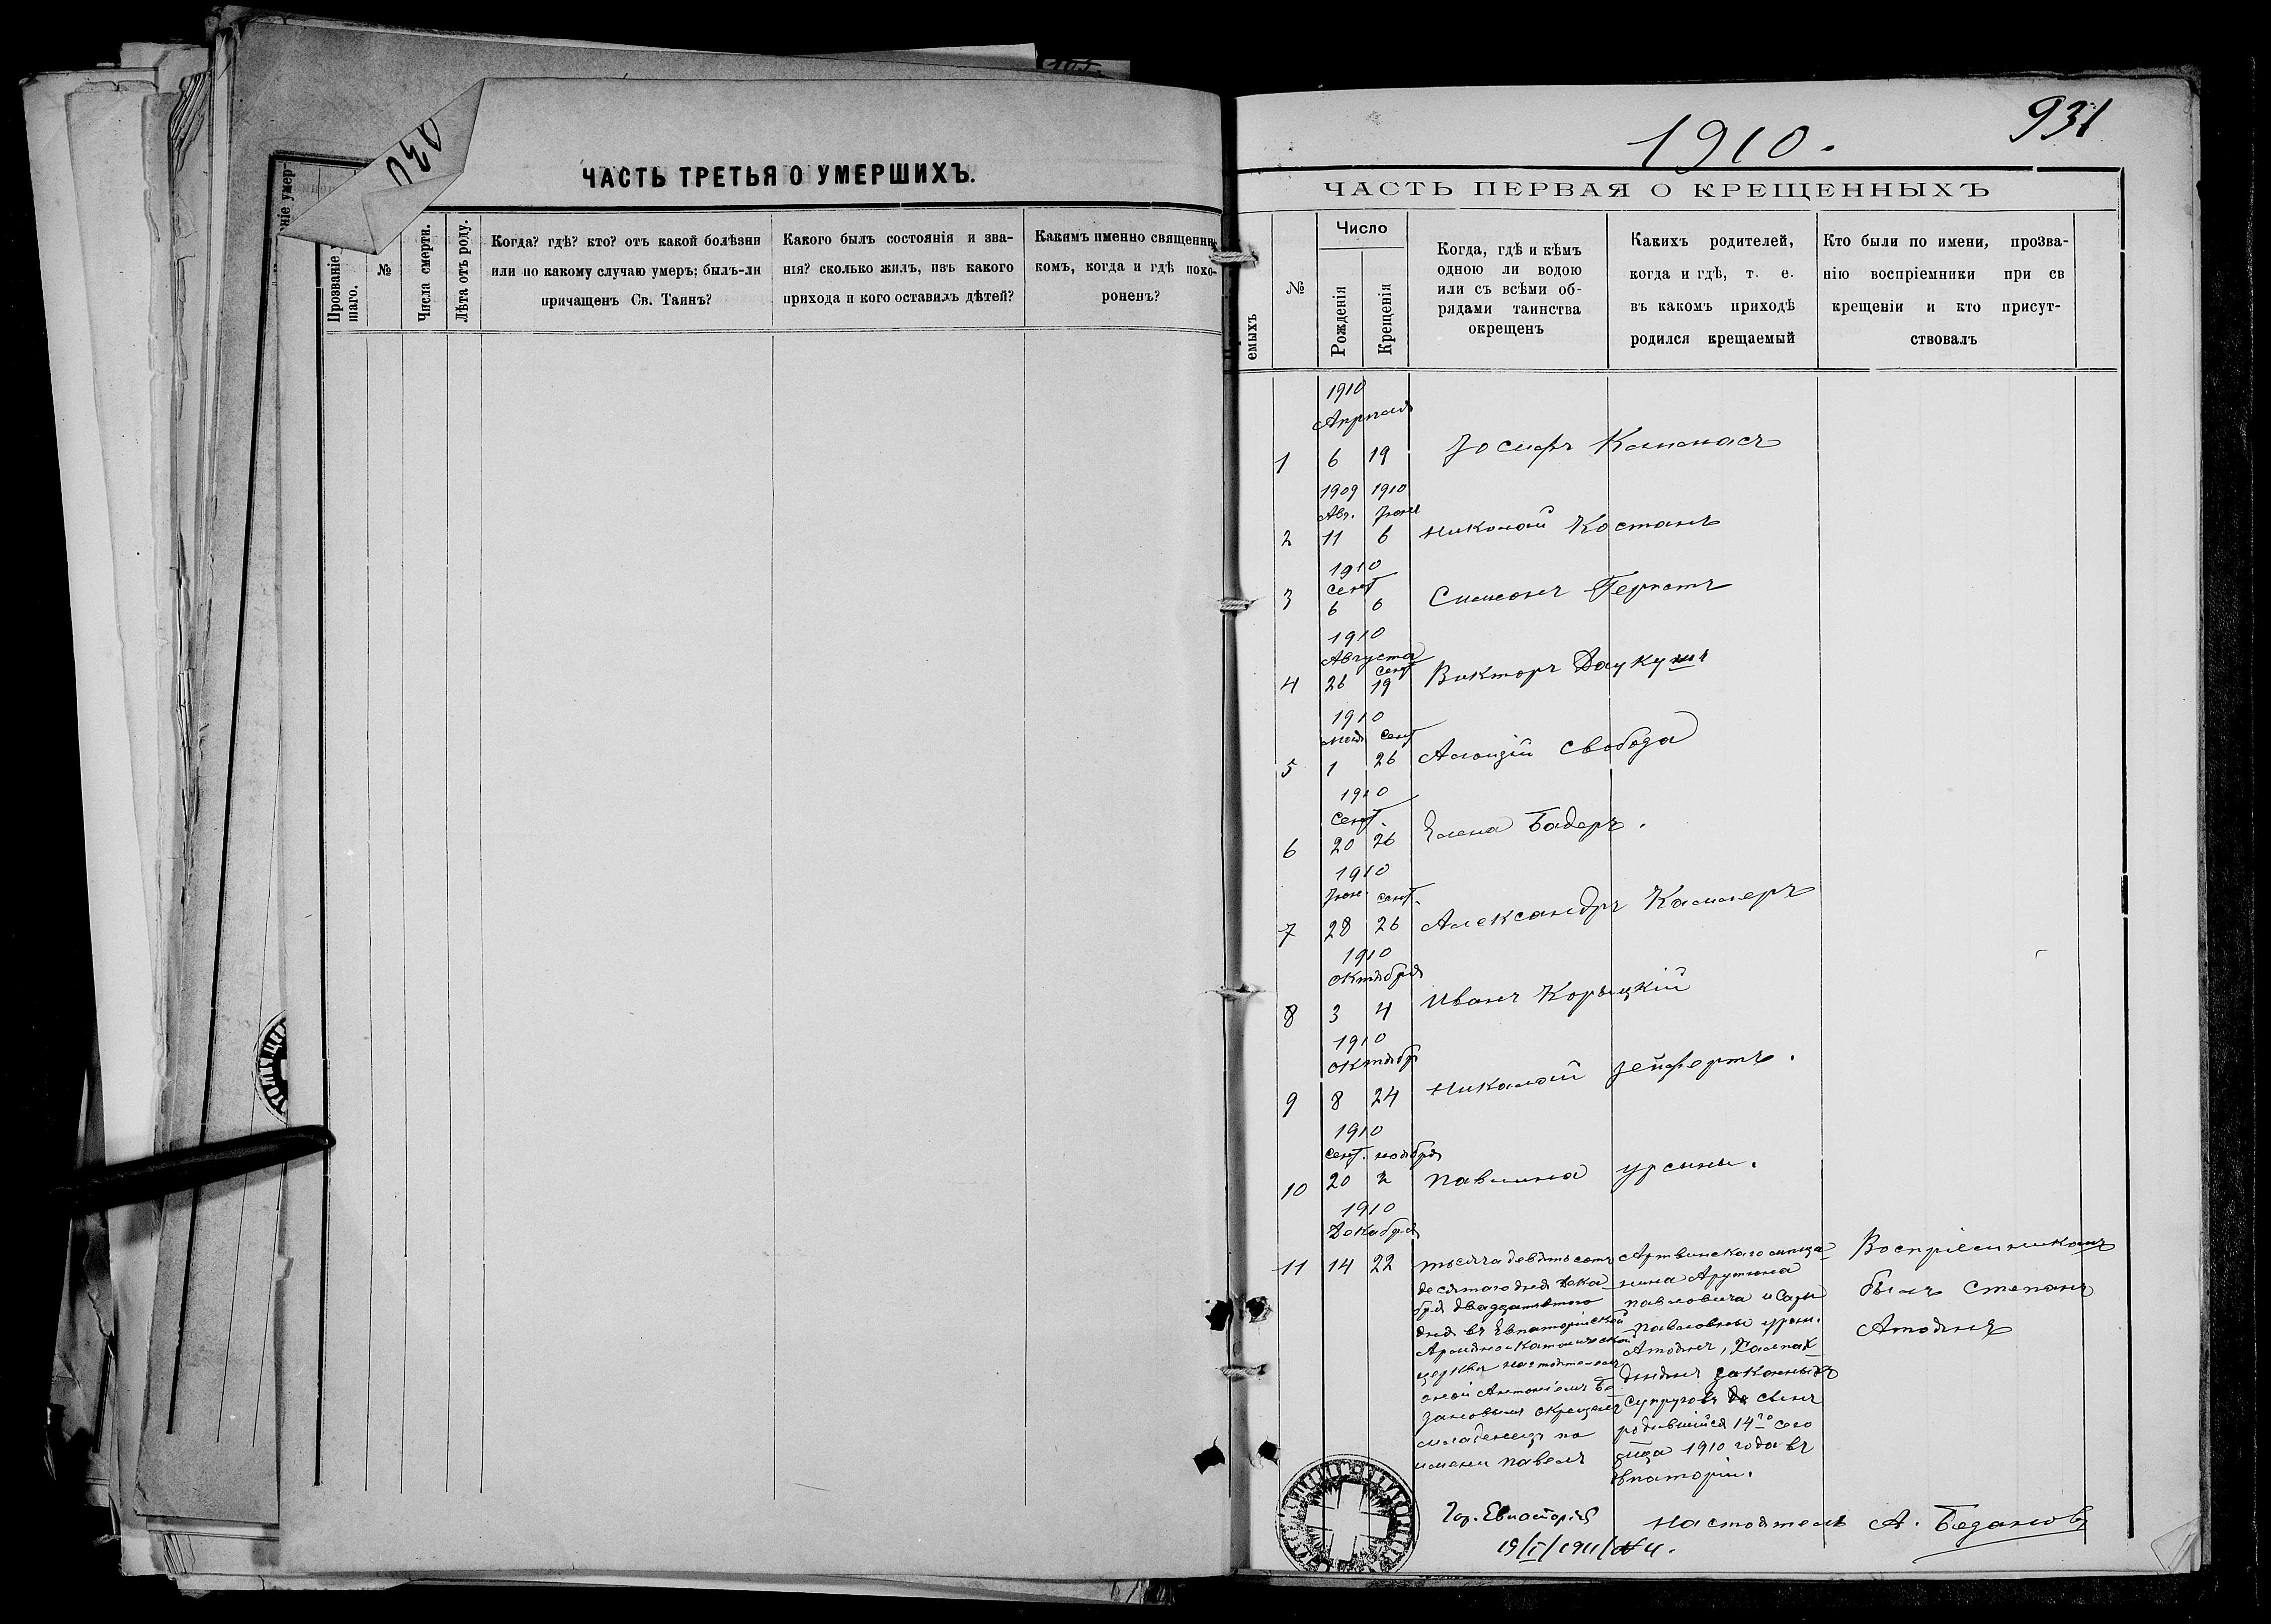 ЧАСТЬ ТРЕТЬЯ О УМЕРШИХЪ.
Прозваніе
шаго.
№
Числа смерти.
Лѣта отъ роду.
Когда? гдѣ? кто? отъ какой болѣзни
или по какому случаю умеръ; былъ-ли
причащенъ Св. Таинъ?
Какого былъ состоянія и зва-
нія? сколько жилъ, изъ какого
прихода и кого оставилъ дѣтей?
Какимъ именно священни-
комъ, когда и гдѣ похо-
роненъ?
931
1910.
ЧАСТЬ ПЕРВАЯ О КРЕЩЕННЫХЪ
емыхъ
№
Число
Рожденія
Крещенія
Когда, гдѣ и кѣмъ
одною ли водою
или съ всѣми об-
рядами таинства
окрещенъ
Какихъ родителей,
когда и гдѣ, т. е.
въ какомъ приходѣ
родился крещаемый
Кто были по имени, прозва-
нію воспріемники при св
крещеніи и кто присут-
ствовалъ
1910
Апрѣля
1 6 19 Іосифъ
1909 1910
Авг. Іюня
2 11 6 Николай Костанъ
1910
Сент
3 6 6 Симонъ
1910
Августа Сент
4 26 19 Викторъ Даукушъ
1910
Мая Сент
5 1 26 Алоизій Свобода
1910
Сент.
6 20 26 Елена Бадеръ.
1910
Іюн. Сент.
7 28 26 Александръ Каммеръ
1910
Октября
8 3 4 Иванъ Корыцкій
1910
Октябр
9 8 24 Николай Зейфертъ.
1910
Сент. ноября
10 20 2 Павлина Урсыны.
1910
Декабря
11 14 22 тысяча девятьсотъ
десятаго дня Дека
бря двадцать втого
дня въ Евпаторійской
Армяно-Католической
церкви настоятелемъ
оной Антоніемъ Бе
зановымъ окрещенъ
младенецъ по
имени Павелъ
Артвинскаго мѣща
нина Арутюна
Павловича и Сары
Павловны урож.
Атоянъ,
законныхъ
супруговъ сынъ
родившійся 14го сего
мца 1910 года въ
Евпаторіи.
Воспріемникомъ
былъ Степанъ
Атоянъ
Гор. Евпаторія
19/I/1911/№ 4.
Настоятель А. Безановъ